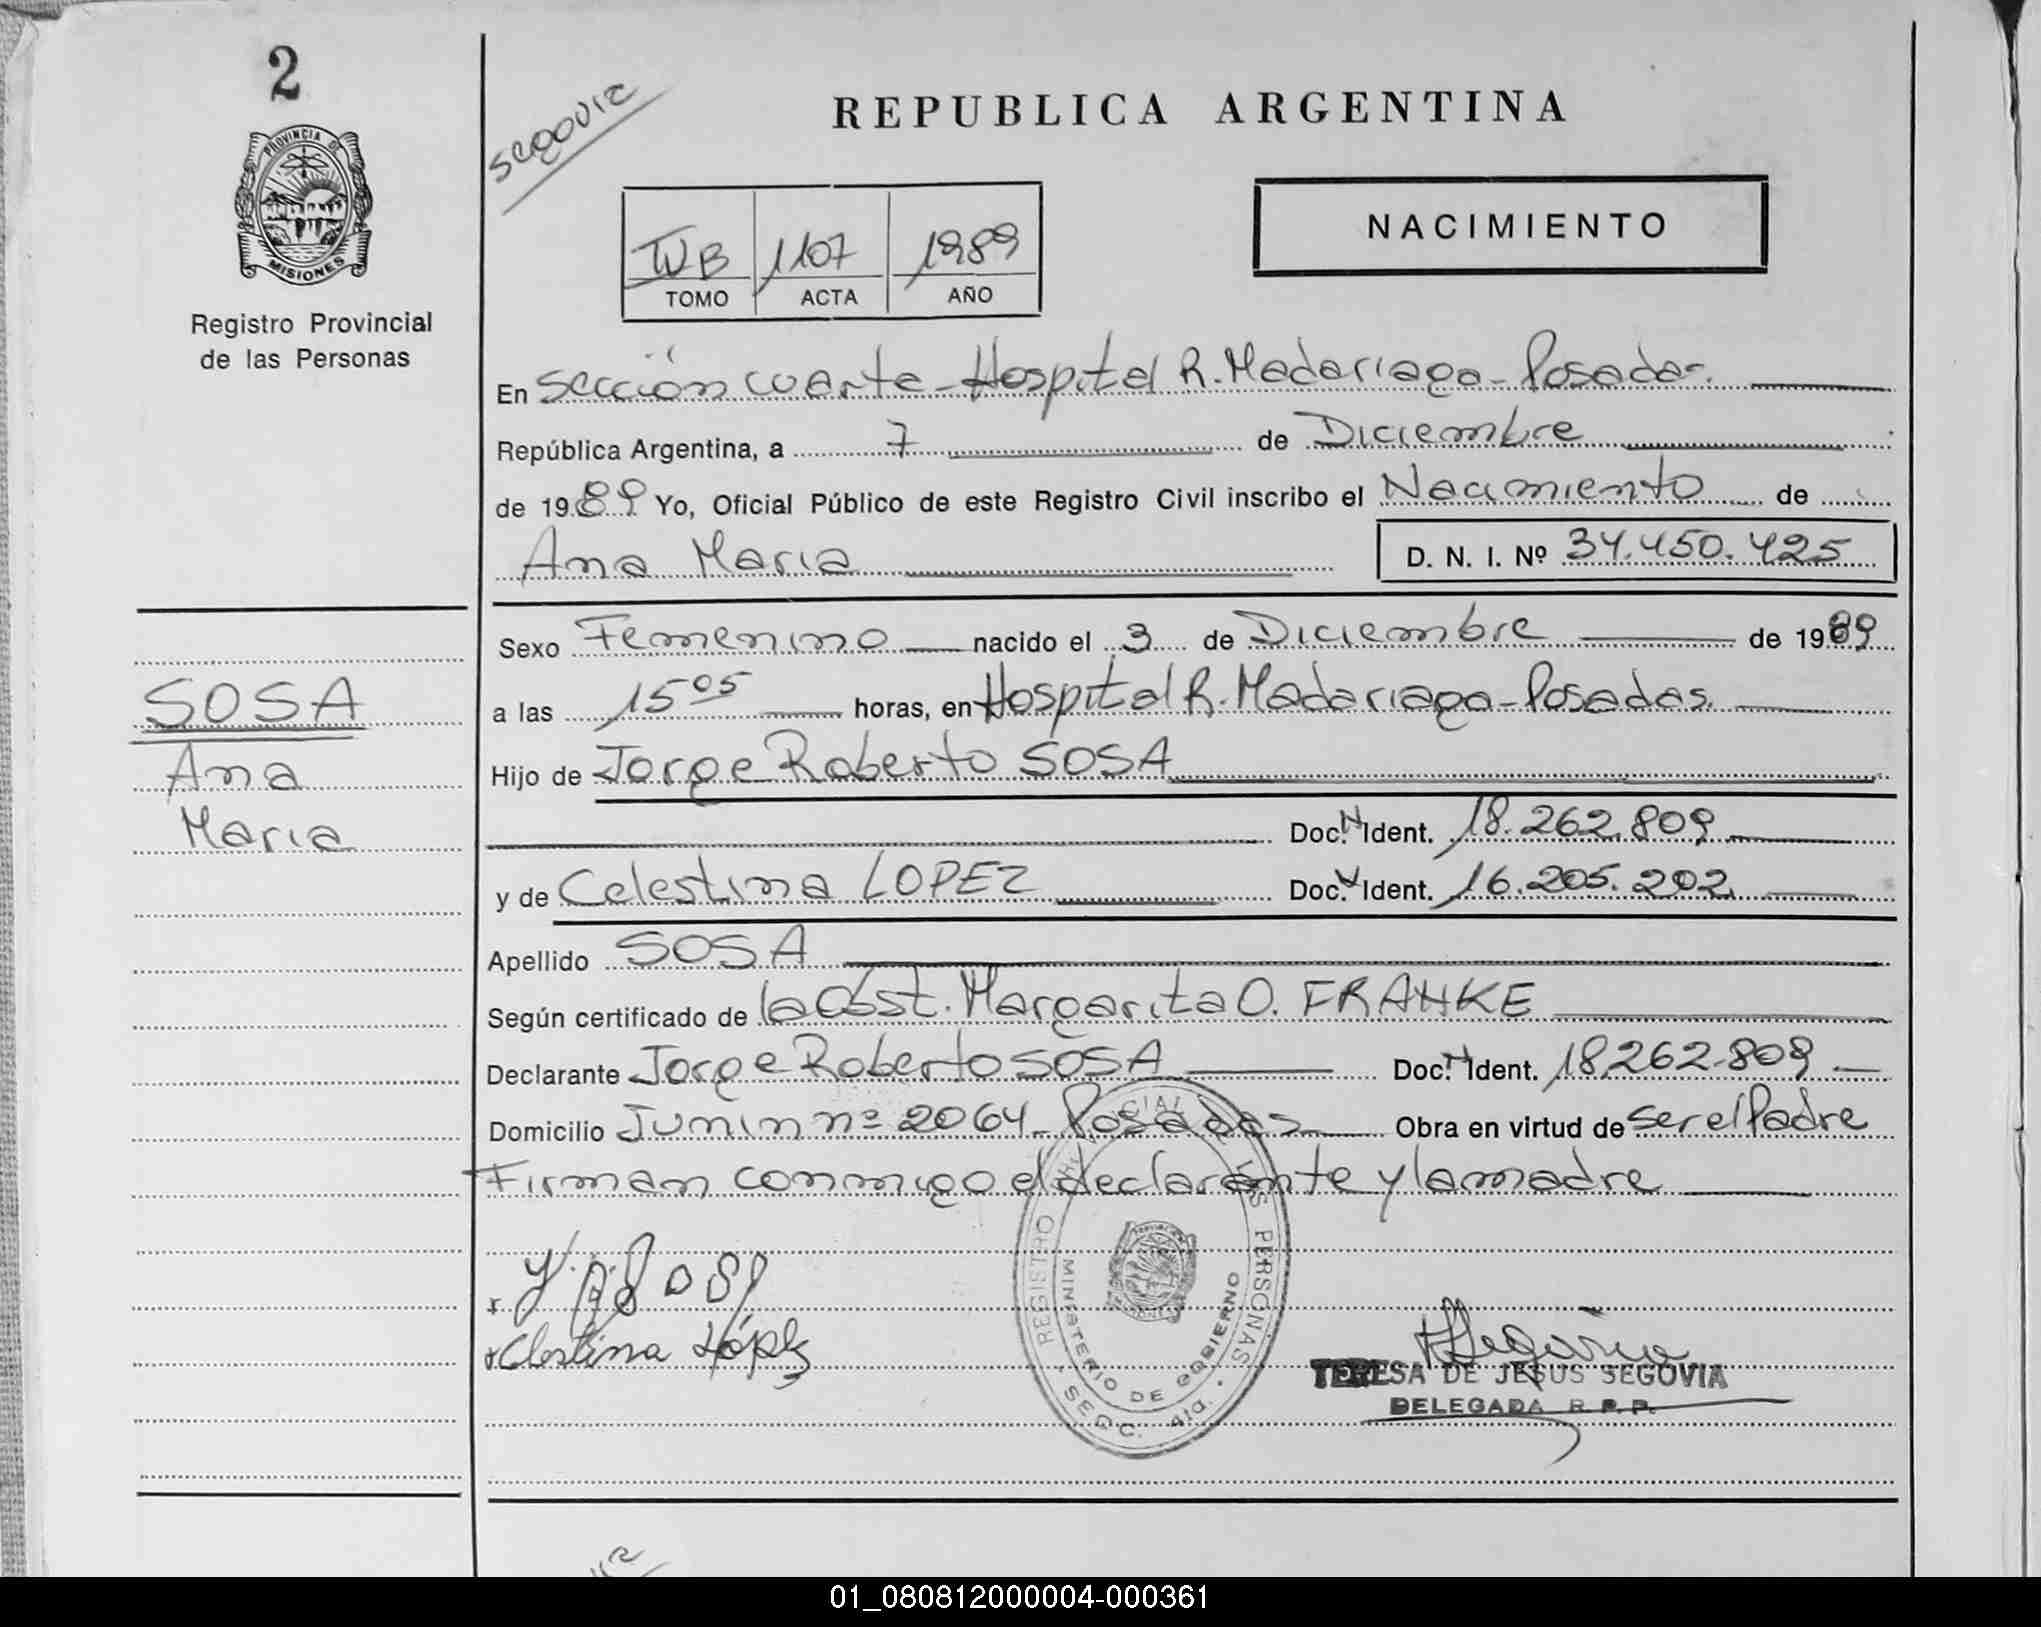 2
PROVINCIA DE
MISIONES
Registro Provincial
de las Personas
SOSA
Ana
Maria
segovia
REPUBLICA ARGENTINA
NACIMIENTO
1107 1989
TOMO ACTA AÑO
En Sección cuarta - Hospital R. Madariaga - Posadas.
República Argentina, a 7 de Diciembre
de 1989 Yo, Oficial Público de este Registro Civil inscribo el Nacimiento de
Ana Maria D. N. I. Nº 34.450.425
Sexo Femenino nacido el 3 de Diciembre de 1989
a las 15 05 horas, en Hospital R. Madariaga - Posadas.
Hijo de Jorge Roberto SOSA
Doc. N. Ident. 18.262.809
y de Celestina LOPEZ Doc. N. Ident. 16.205.202
Apellido SOSA
Según certificado de la Obst. Margarita O. FRANKE
Declarante Jorge Roberto SOSA Doc. N. Ident. 18.262.809
Domicilio Junin nº 2064 - Posadas Obra en virtud de ser el Padre
Firman conmigo el declarante y la madre
REGISTRO PERSONAS
MINISTERIO DE GOBIERNO
SECC. 4ta.
Celestina López
Segovia
TERESA DE JESUS SEGOVIA
DELEGADA R. P. P.
01_080812000004-000361